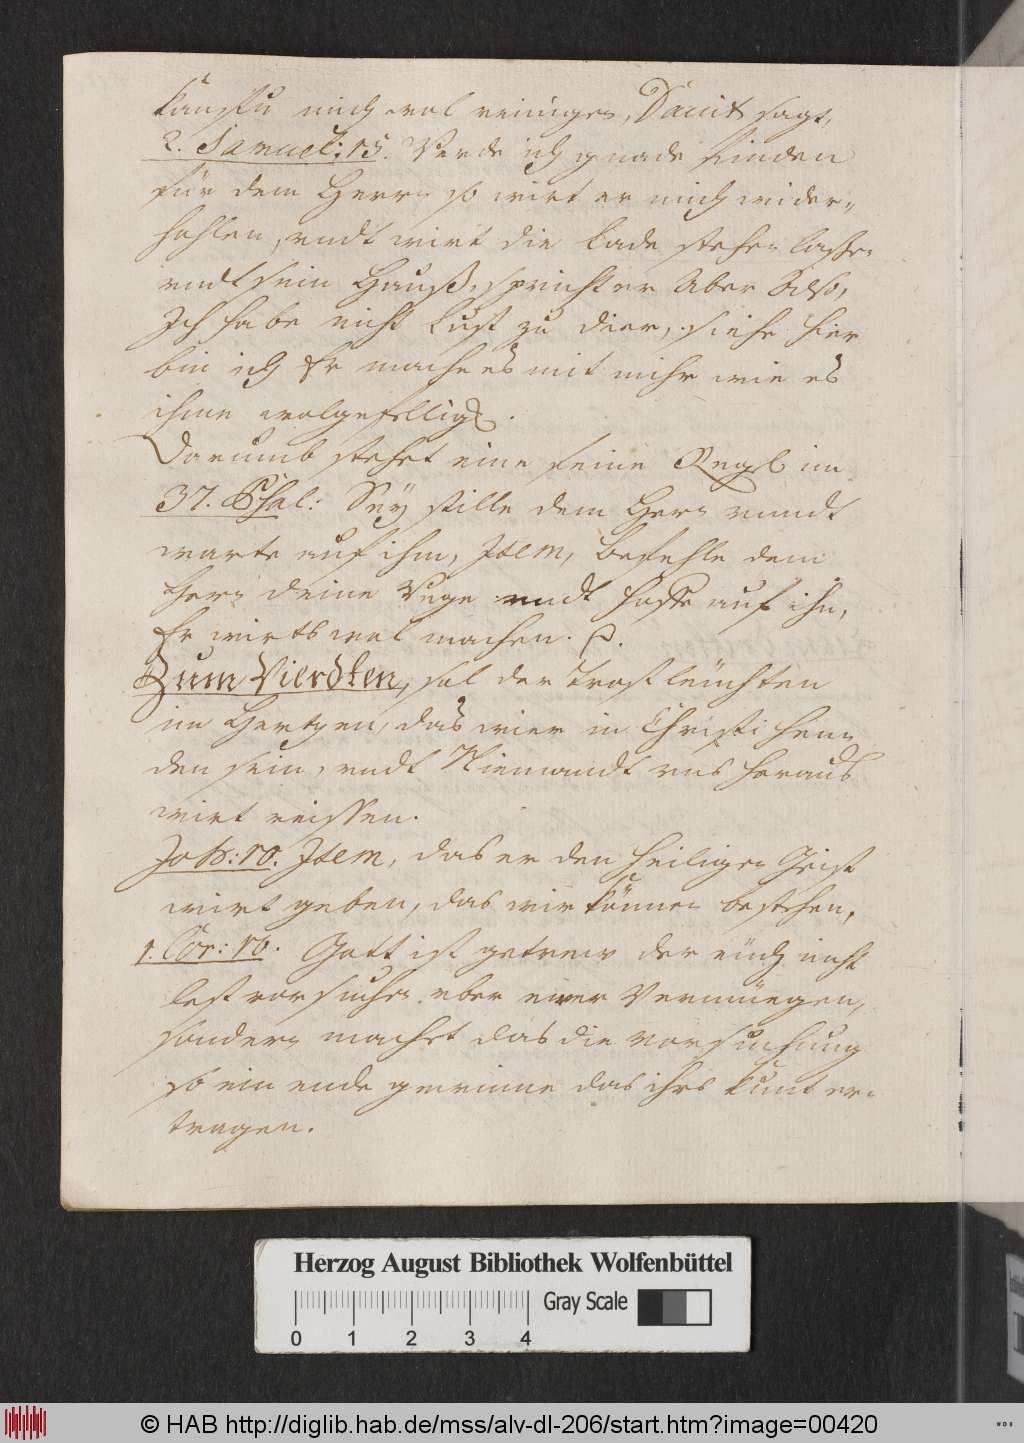 kanstu mich wol reinigen, Dauit sagt,
2. Samuel: 15. Werde ich gnade finden
für dem Herrn so wirt er mich wider-
hohlen, undt wirt die Lade sehen lassen
undt sein Hauß, spricht er Aber Also,
Ich habe nicht Lust zu dier, siehe hier
bin ich Er mache es mit mihr wie es
ihme wolgefellig.
Darumb stehet eine feine Regel im
37. Psal: Sey stille dem Hern unndt
warte auf ihm, Item, befehle dem
Hern deine Wege undt hoffe auf ihn,
Er wirts wol machen.
Zum Vierdten, sol der Trost leüchten
im Hertzen, das wier in Christi Hen-
den sein, undt Niemandt uns heraus
wirt reissen.
Joh: 10. Item, das er den heiligen Geist
wirt geben, das wir können bestehen,
1. Cor: 10. Gott ist getrew der eüch nicht
lest vorsuchen uber ewer Vermüegen,
sondern machet das die vorsuchung
so ein ende gewinne das ihrs kunt er-
tragen.
Herzog August Bibliothek Wolfenbüttel
0 1 2 3 4 Gray Scale
© HAB http://diglib.hab.de/mss/alv-dl-206/start.htm?image=00420